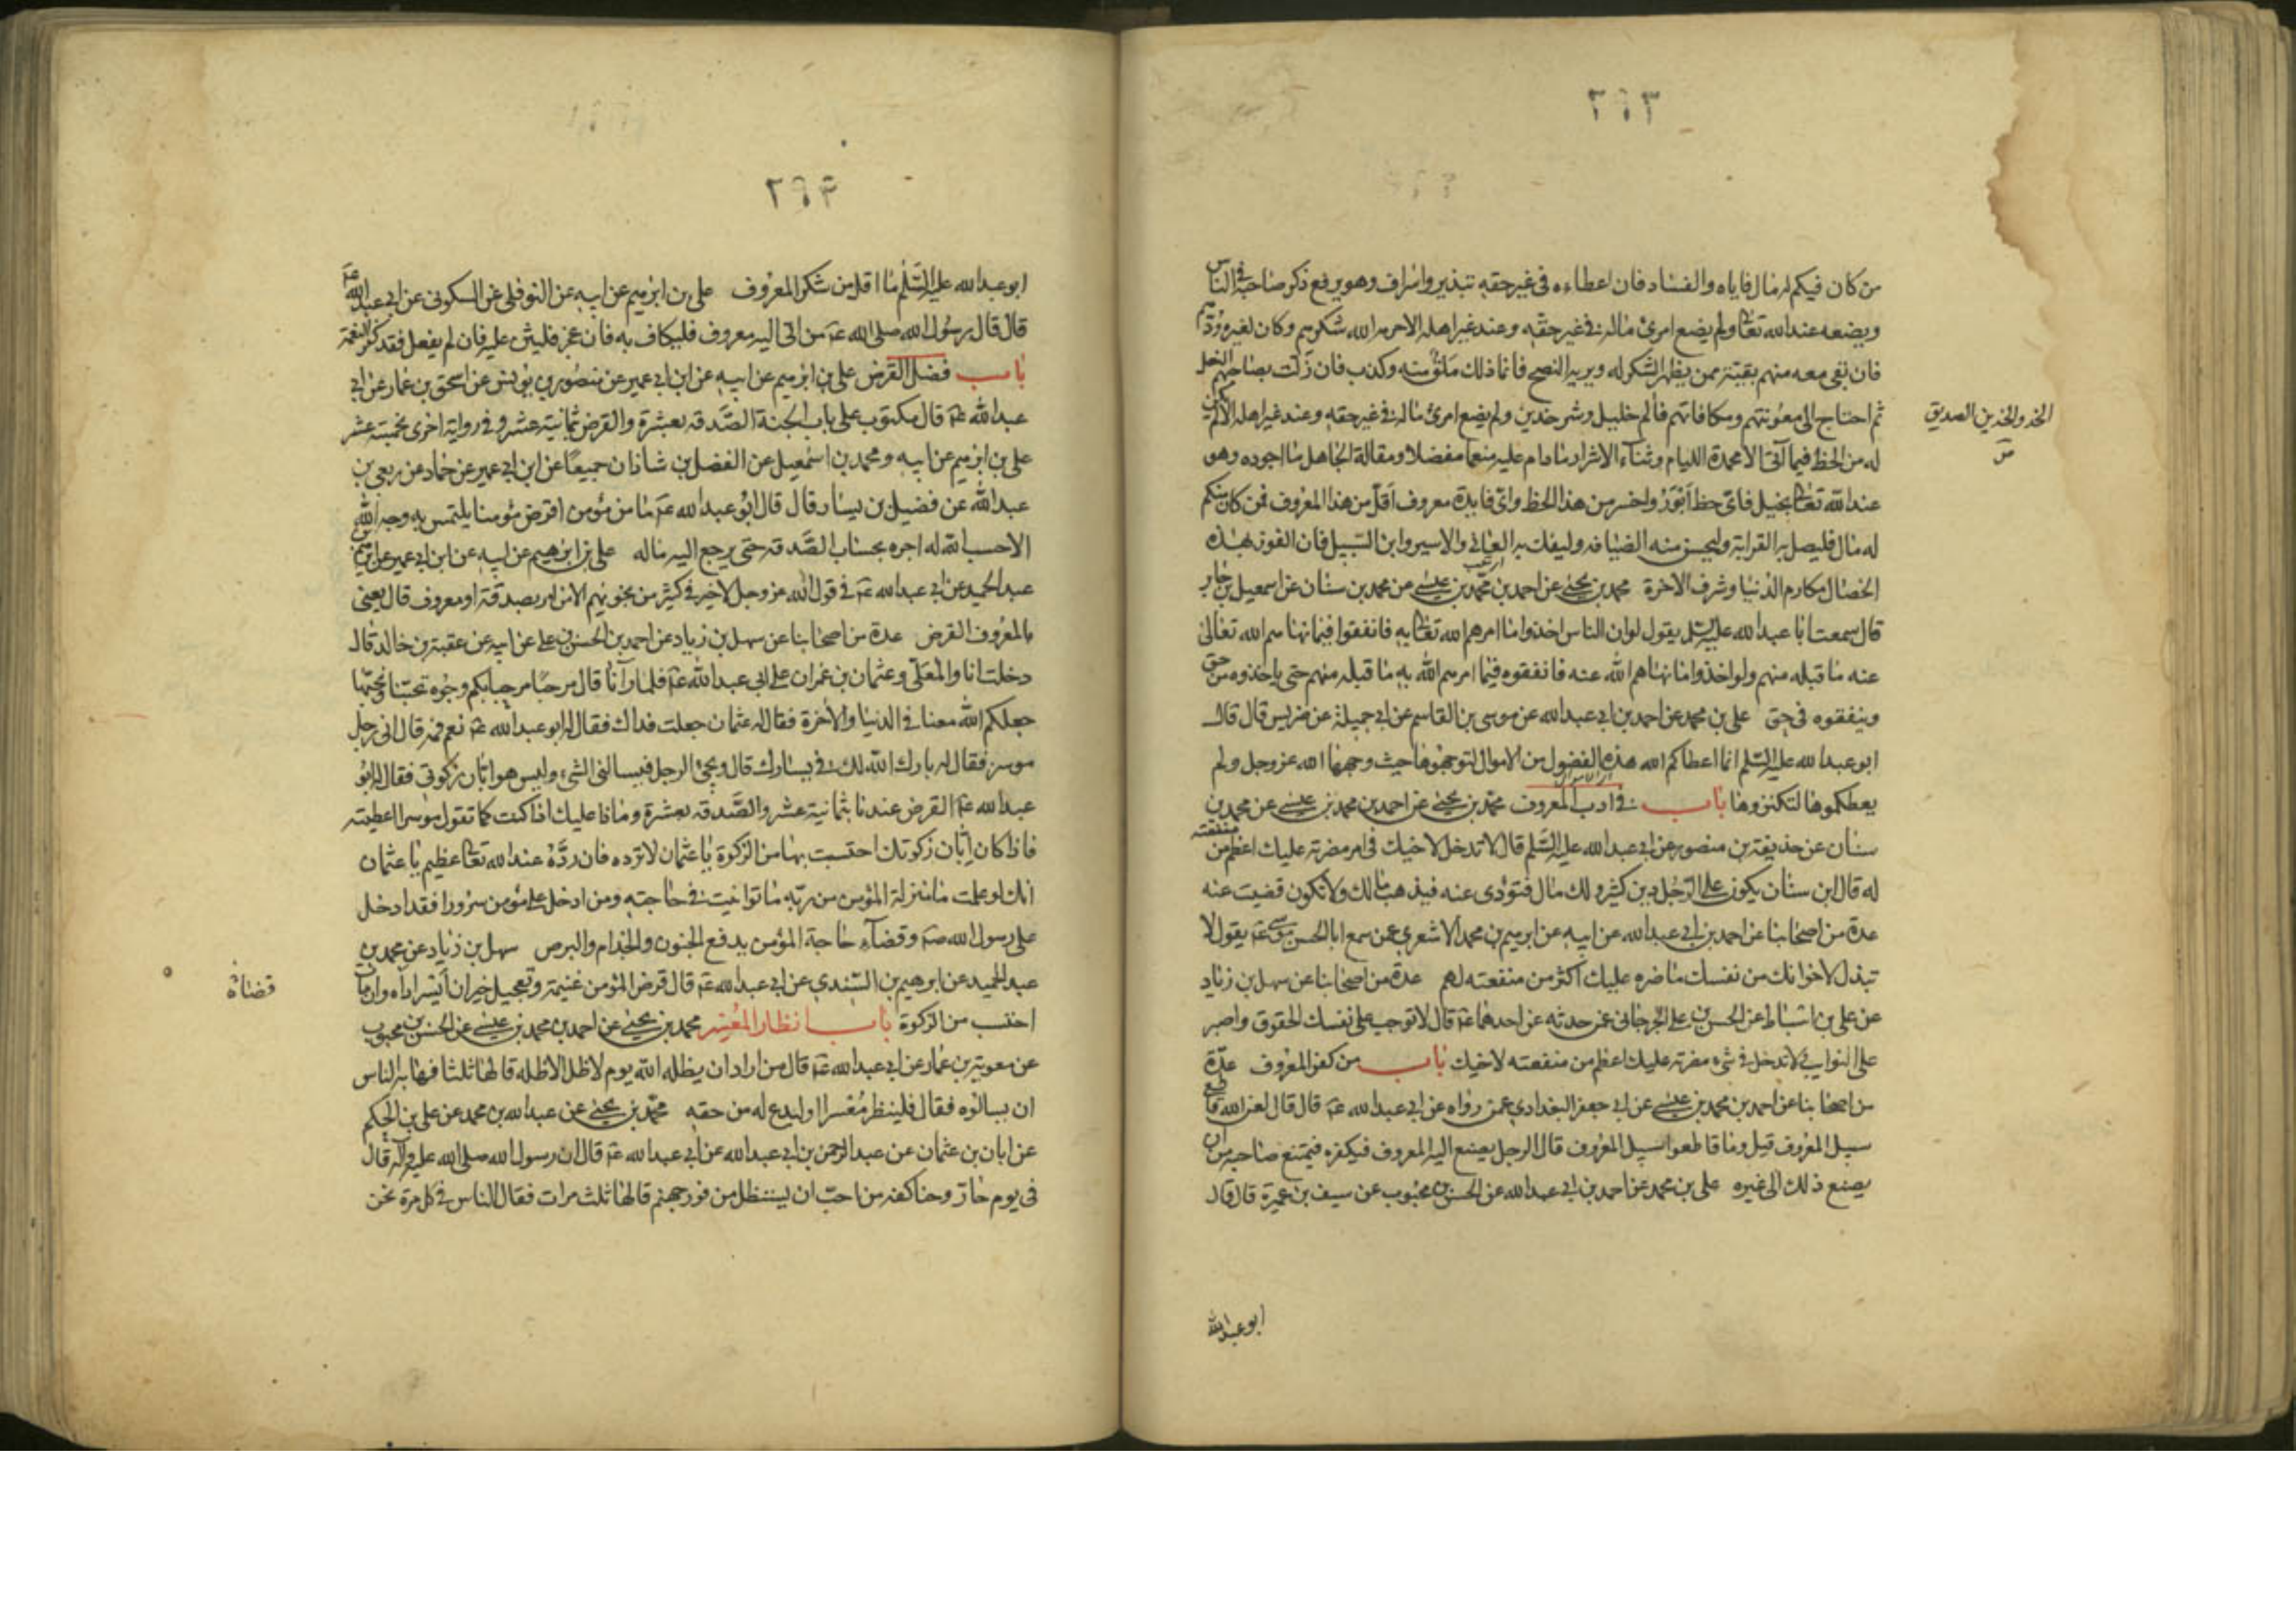 ٢٩٣
من كان فيكم له مال فاياه والفساد فان اعطاءه فى غير حقه تبذير واسراف وهو يرفع ذكر صاحبه فى الناس
ويضعه عند الله تعالى ولم يضع امرئ ماله فى غير حقه وعند غير اهله الا حرمه الله شكرهم وكان لغيره ودّهم
فان بقى معه منهم بقية ممن يظهر الشكر له ويريد النصح فانما ذلك ملق منه وكذب فان زلت بصاحبهم النعل
ثم احتاج الى معونتهم ومكافاتهم فألم خليل وشر خدين ولم يضع امرئ ماله فى غير حقه وعند غير اهله الا لم يكن
الخد والخدين الصديق
له من الحظ فيما آتى الا محمدة اللئام وثناء الاشرار مادام عليه منعما مفضلا ومقالة الجاهل ما اجوده وهو
عند الله تعالى بخيل فاىّ حظ أبور واخسر من هذا الحظ واىّ فايدة معروف اقلّ من هذا المعروف فمن كان منكم
له مال فليصل به القرابة وليحسن منه الضيافة وليفك به العانى والاسير وابن السبيل فان الفوز بهذه
الخصال مكارم الدنيا وشرف الاخرة محمد بن يحيى عن احمد بن محمد بن عيسى عن محمد بن سنان عن اسمعيل بن جابر
قال سمعت ابا عبد الله عليه السلم يقول لو ان الناس اخذوا ما امرهم الله تعالى به فانفقوا فيما نهاهم الله تعالى
عنه ما قبله منهم ولو اخذوا ما نهاهم الله عنه فانفقوه فيما امرهم الله به ما قبله منهم حتى ياخذوه من حق
وينفقوه فى حق على بن محمد عن احمد بن ابى عبد الله عن موسى بن القاسم عن ابى جميلة عن ضريس قال قال
ابو عبد الله عليه السلم انما اعطاكم الله هذه الفضول من الاموال لتوجهوها حيث وجهها الله عز وجل ولم
يعطكموها لتكنزوها باب فى ادب المعروف محمد بن يحيى عن احمد بن محمد بن عيسى عن محمد بن
سنان عن حذيفة بن منصور عن ابى عبد الله عليه السلم قال لا تدخل لاخيك فى امر مضرته عليك اعظم من منفعته
له قال ابن سنان يكون على الرجل دين كثير ولك مال فتؤدى عنه فيذهب مالك ولا تكون قضيت عنه
عدة من اصحابنا عن احمد بن ابى عبد الله عن ابيه عن ابرهيم بن محمد الاشعرى عمن سمع ابا الحسن موسى عم يقول لا
تبذل لاخوانك من نفسك ما ضره عليك اكثر من منفعته لهم عدة من اصحابنا عن سهل بن زياد
عن على بن اسباط عن الحسن بن على الجرجانى عمن حدثه عن احدهما عم قال لا توجب على نفسك الحقوق واصبر
على النوايب لا تدخل فى شىء مضرته عليك اعظم من منفعته لاخيك باب من كفر المعروف عدّة
من اصحابنا عن احمد بن محمد بن عيسى عن ابى جعفر البغدادى عمن رواه عن ابى عبد الله عم قال قال لعن الله قاطعى
سبل المعروف قيل وما قاطعوا سبيل المعروف قال الرجل يصنع اليه المعروف فيكفره فيمتنع صاحبه من ان
يصنع ذلك الى غيره على بن محمد عن احمد بن ابى عبد الله عن الحسن بن محبوب عن سيف بن عميرة قال قال
ابو عبد الله
٢٩٤
ابو عبد الله عليه السّلم ما اقل من شكر المعروف على بن ابرهيم عن ابيه عن النوفلى عن السكونى عن ابى عبد الله عم
قال قال رسول الله صلى الله عم من اتى اليه معروف فليكاف به فان عجز فليثن عليه فان لم يفعل فقد كفر النعمة
باب فضل القرض على بن ابرهيم عن ابيه عن ابن ابى عمير عن منصور بن يونس عن اسحق بن عمار عن ابى
عبد الله عم قال مكتوب على باب الجنة الصّدقه بعشرة والقرض بثمانية عشر وفى رواية اخرى بخمسة عشر
على بن ابرهيم عن ابيه ومحمد بن اسمعيل عن الفضل بن شاذان جميعًا عن ابن ابى عمير عن حماد عن ربعى بن
عبد الله عن فضيل بن يسار قال قال ابو عبد الله عم ما من مؤمن اقرض مؤمنا يلتمس به وجه الله
الا حسب الله له اجره بحساب الصّدقه حتى يرجع اليه ماله على بن ابرهيم عن ابيه عن ابن ابى عمير عن ابرهيم بن
عبد الحميد عن ابى عبد الله عم فى قول الله عز وجل لا خير فى كثير من نجويهم الا من امر بصدقة او معروف قال يعنى
بالمعروف القرض عدة من اصحابنا عن سهل بن زياد عن احمد بن الحسن بن على عن ابيه عن عقبة بن خالد قال
دخلت انا والمعلّى وعثمان بن عمران على ابى عبد الله عم فلما رآنا قال مرحبًا مرحبا بكم وجوه تحبّنا ونحبّها
جعلكم الله معنا فى الدنيا والاخرة فقال له عثمان جعلت فداك فقال له ابو عبد الله عم نعم فمه قال انى رجل
موسر فقال له بارك الله لك فى يسارك قال ويجئ الرجل فيسالنى الشىء وليس هو ابّان زكوتى فقال له ابو
عبد الله عم القرض عندنا بثمانية عشر والصّدقه بعشرة وماذا عليك اذا كنت كما تقول موسرا اعطيته
فاذا كان ابّان زكوتك احتسبت بها من الزكوة يا عثمان لا ترده فان ردّه عند الله تعالى عظيم يا عثمان
انك لو علمت ما منزلة المؤمن من ربّه ما توانيت فى حاجته ومن ادخل على مؤمن سرورا فقد ادخل
على رسول الله صم وقضاء حاجة المؤمن يدفع الجنون والجذام والبرص سهل بن زياد عن محمد بن
عبد الحميد عن ابرهيم بن السّندى عن ابى عبد الله عم قال قرض المؤمن غنيمة وتعجيل خير ان ايسر اداه وان مات
قضاه
احتسب من الزكوة باب انظار المُعسِر محمد بن يحيى عن احمد بن محمد بن عيسى عن الحسن بن محبوب
عن معوية بن عمار عن ابى عبد الله عم قال من اراد ان يظله الله يوم لا ظل الا ظله قالها ثلثا فهابه الناس
ان يسالوه فقال فلينظر مُعسرا او ليدع له من حقه محمّد بن يحيى عن عبد الله بن محمد عن على بن الحكم
عن ابان بن عثمان عن عبد الرحمن بن ابى عبد الله عن ابى عبد الله عم قال ان رسول الله صلى الله عليه وآله قال
فى يوم حارّ وحنا كفه من احبّ ان يستظل من فور جهنم قالها ثلث مرات فقال الناس فى كل مرة نحن